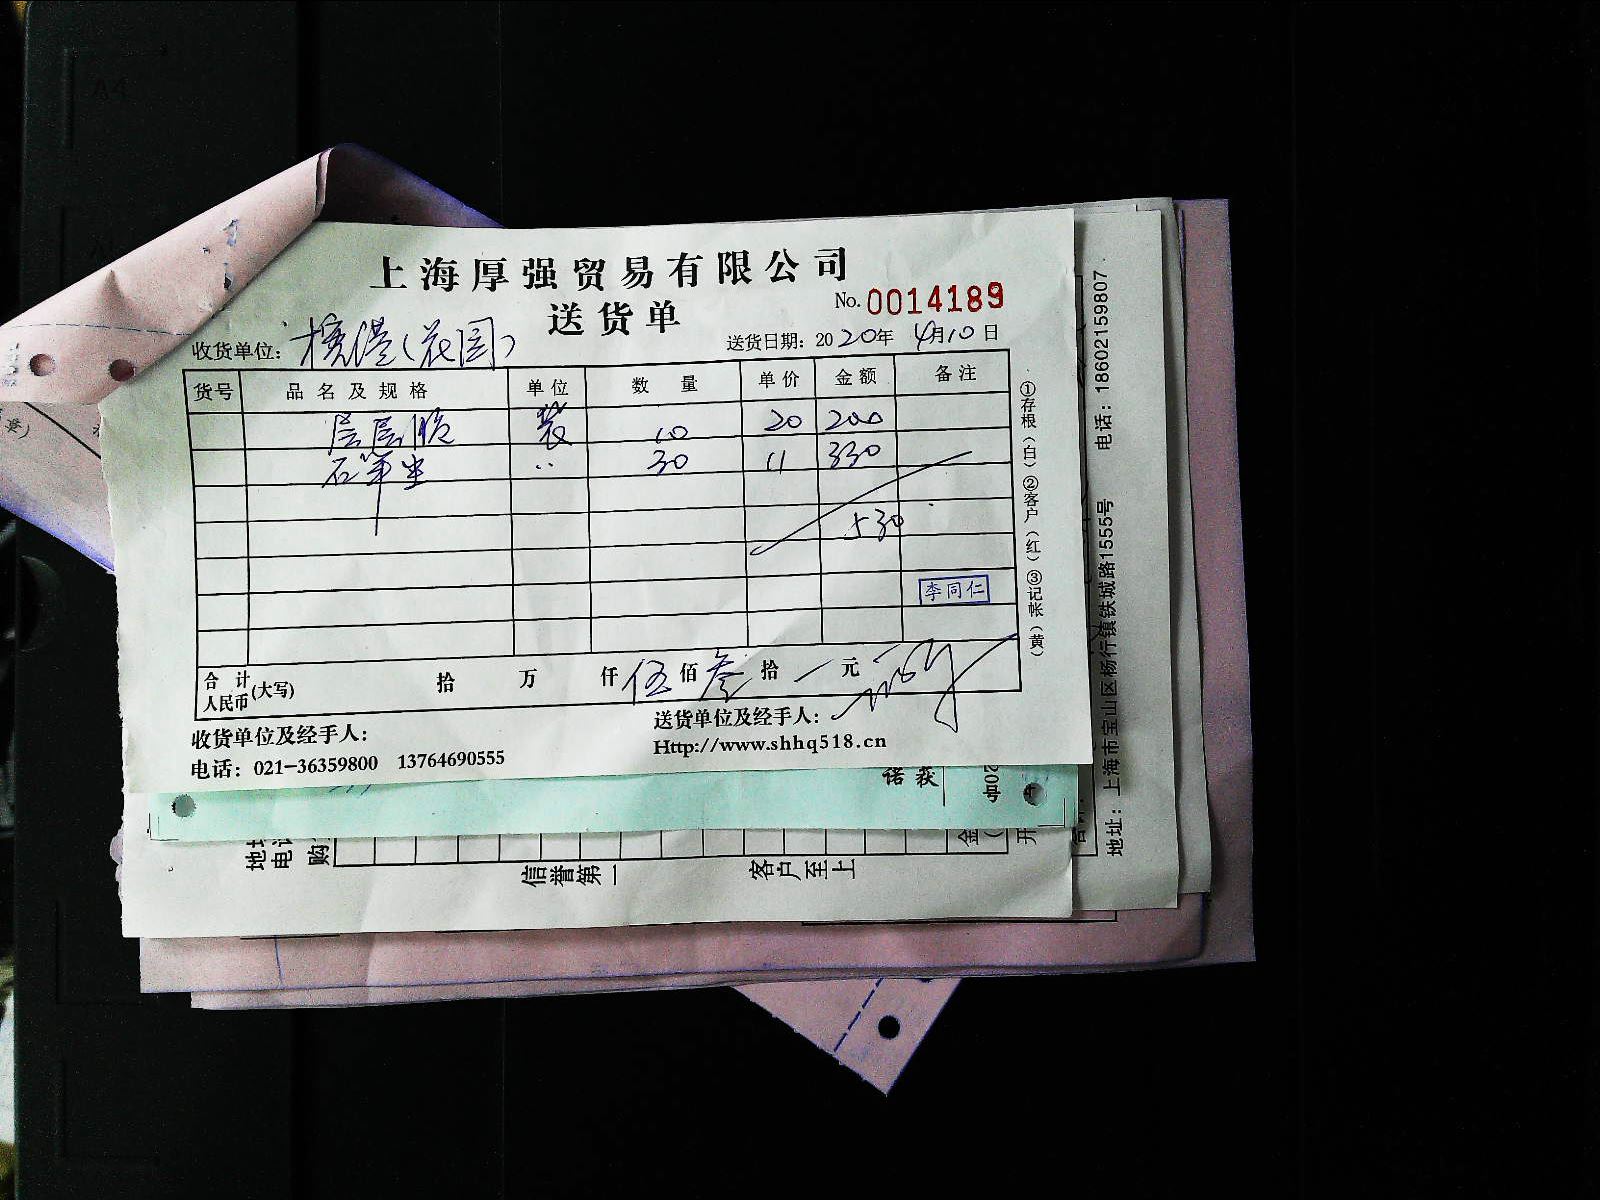 上海厚强贸易有限公司
送货单
No. 0014189
收货单位：横港（花园）
送货日期：2020年 4月10日
货号 品名及规格 单位 数量 单价 金额 备注
层层脆 袋 10 20 200
石笋尖 〃 30 11 330
530
李同仁
合计人民币(大写) 拾 万 仟 伍 佰 叁 拾 元
收货单位及经手人：
送货单位及经手人：
电话：021-36359800 13764690555
Http://www.shhq518.cn
①存根（白）②客户（红）③记帐（黄）
地址：上海市宝山区杨行镇铁城路1555号 电话：18602159807
信誉第一 客户至上